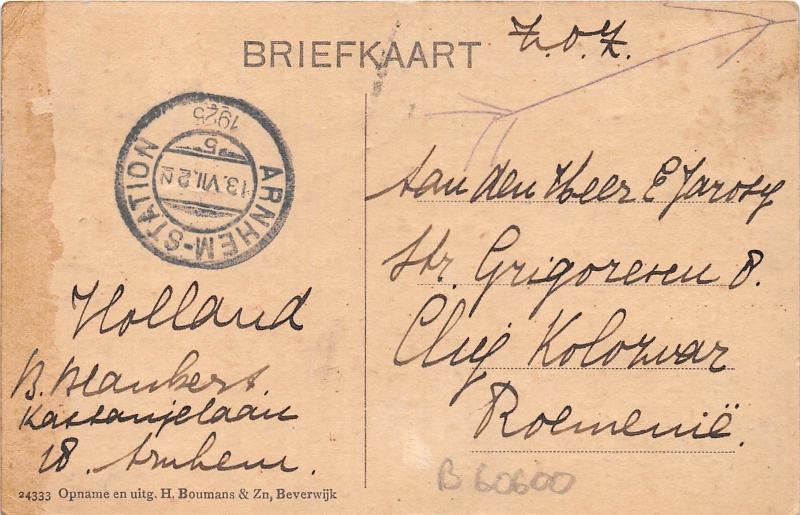 BRIEFKAART
Z.O.Z.
ARNHEM-STATION
13.VII.2N
5
1925
Aan den Heer E Jarosy
Str. Grigorescu 8.
Cluj Kolozvar
Roemenië.
Holland
B. Blankert.
Kastanjelaan
18. Arnhem.
B 60600
24333 Opname en uitg. H. Boumans & Zn, Beverwijk